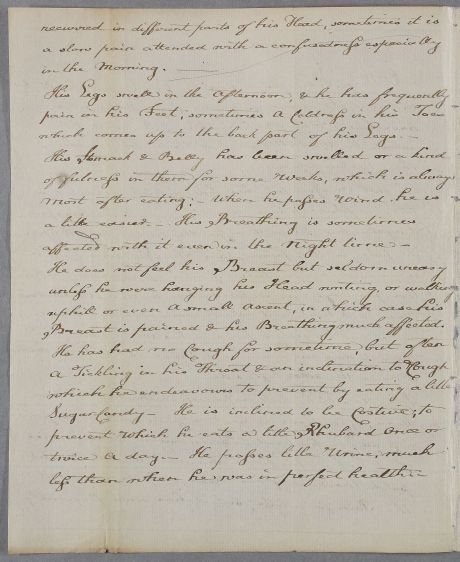 received in different parts of his Head, sometimes it is
a slow pain attended with a confusedness especially
in the Morning.
His Legs swell in the Afternoon, & he has frequently
pain in his Feet, sometimes a Coldness in his Toes
which comes up to the back part of his Legs.-
His Stomach & Belly has been swelled or a kind
of fulness in them for some Weeks, which is always
most after eating; - When he passes Wind he is
a little easier.- His Breathing is sometimes
affected with it even in the Night time.-
He does not feel his Breast but seldom uneasy
unless he were hanging his Head writing, or walking
uphill or even a small ascent, in which case his
Breast is pained & his Breathing much affected.
He has had no Cough for sometime, but often
a Tickling in his Throat & an inclination to Cough
which he endeavours to prevent by eating a little
Sugar Candy- He is inclined to be Costive; to
prevent which he eats a little Rhubard Once or
twice a day.- He passes little Urine, much
less than when he was in perfect health.-